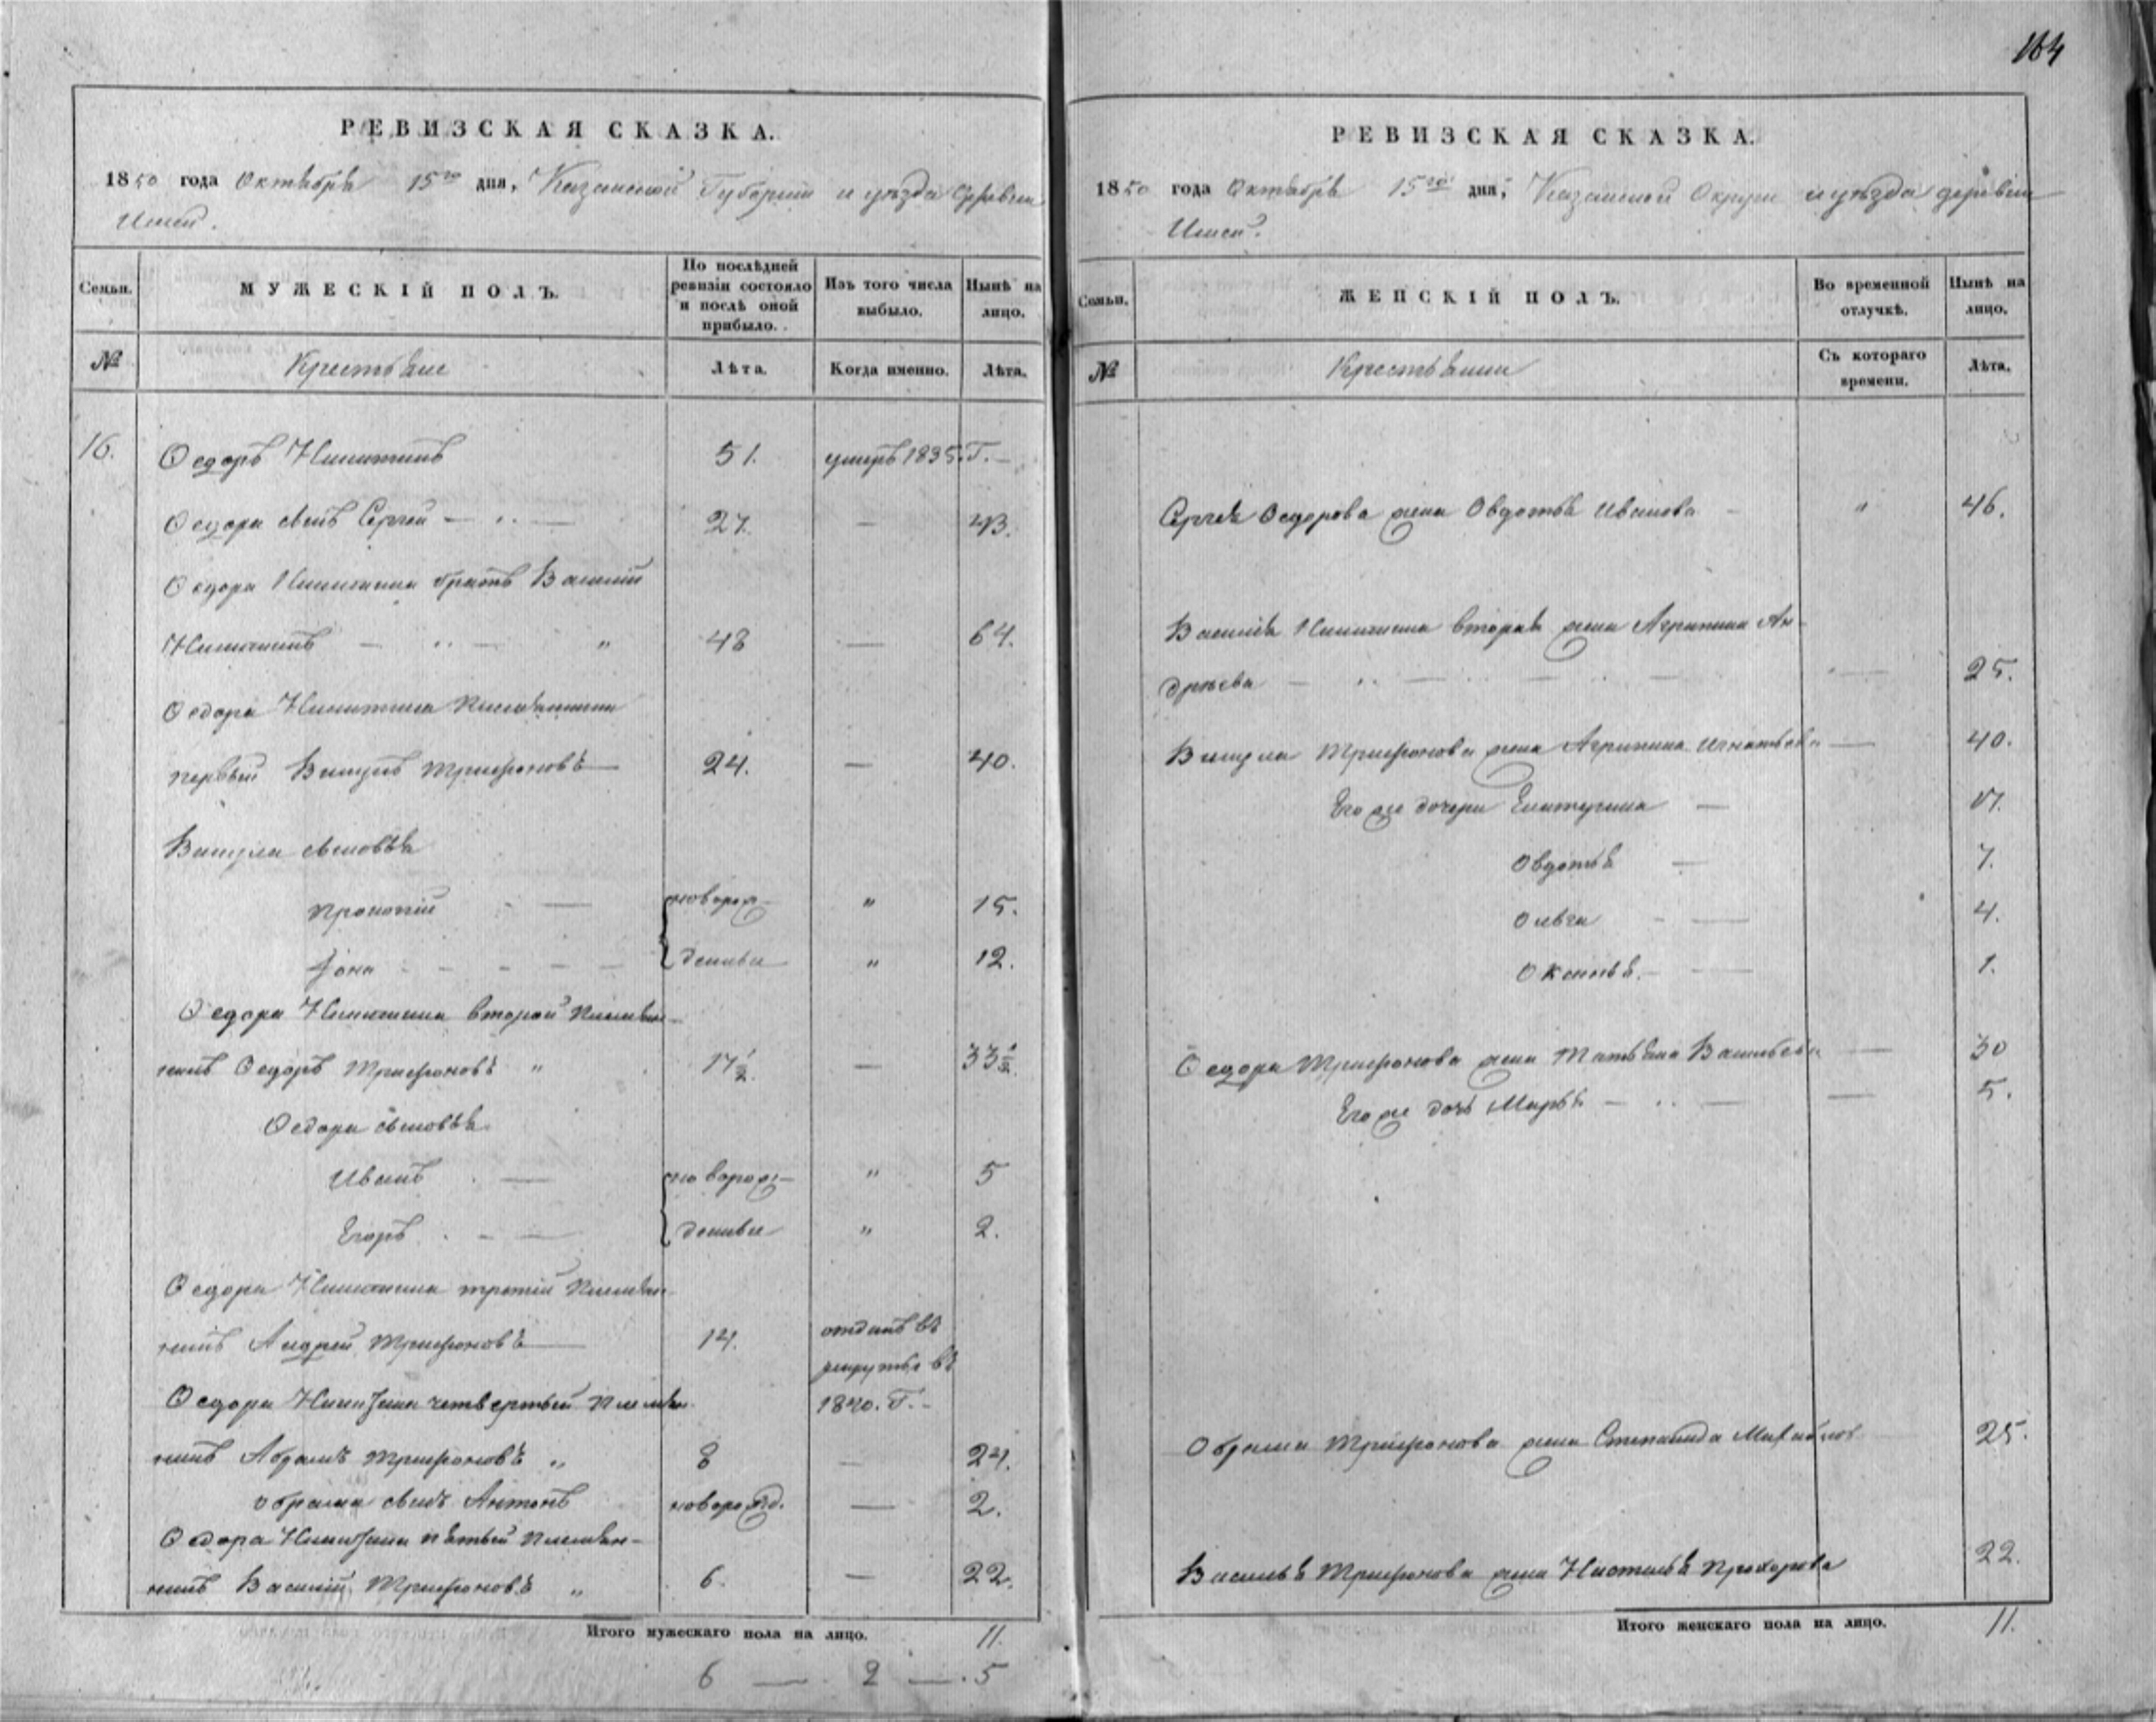 164
РЕВИЗСКАЯ СКАЗКА.
1850 года Октября 15го дня, Казанской Губернии и уѣзда деревни
РЕВИЗСКАЯ СКАЗКА.
1850 года Октября 15го дня, Казанской Округи и уѣзда деревни
Семьи.
МУЖЕСКІЙ ПОЛЪ.
По послѣдней ревизіи состояло и послѣ оной прибыло.
Изъ того числа выбыло.
Нынѣ на лицо.
№
Крестьяне
Лѣта.
Когда именно.
Лѣта.
16. Ѳедоръ Никитинъ 51. умеръ 1835. Г.
Ѳедора сынъ Сергей 27. — 43.
Ѳедора Никитина братъ Василий
Никитинъ 48 — 64.
Ѳедора Никитина Племянники
первый Викулъ Трифоновъ 24. — 40.
Викула сыновья
Прокопий новорож- " 15.
Иона денные " 12.
Ѳедора Никитина второй Племян-
никъ Ѳедоръ Трифоновъ " 17½. — 33½.
Ѳедора сыновья
Иванъ новорож- " 5
Егоръ денные " 2.
Ѳедора Никитина третий Племян-
никъ Андрей Трифоновъ 14. отданъ въ
рекруты въ
Ѳедора Никитина четвертый Племян- 1840. Г.
никъ Абрамъ Трифоновъ " 8 — 24.
Обрама сынъ Антонъ новорожд. — 2.
Ѳедора Никитина пятый Племян-
никъ Василий Трифоновъ " 6. — 22.
Итого мужескаго пола на лицо. 11.
6 — 2 — 5
Семьи.
ЖЕНСКІЙ ПОЛЪ.
Во временной отлучкѣ.
Нынѣ на лицо.
№
Крестьянки
Съ котораго времени.
Лѣта.
Сергея Ѳедорова жена Овдотья Иванова " 46.
Василия Никитина вторая жена Агрипина Ан-
дреева — 25.
Викула Трифонова жена Агрипина Игнатьева — 40.
Его же дочери Екатерина
Овдотья 7.
Ольга 4.
Оксинья 1.
Ѳедора Трифонова жена Татьяна Васильева — 30
Его же дочь Марья — 5.
Обрама Трифонова жена Степанида Михайлов 25.
Василья Трифонова жена Настасья Прохорова 22.
Итого женскаго пола на лицо. 11.